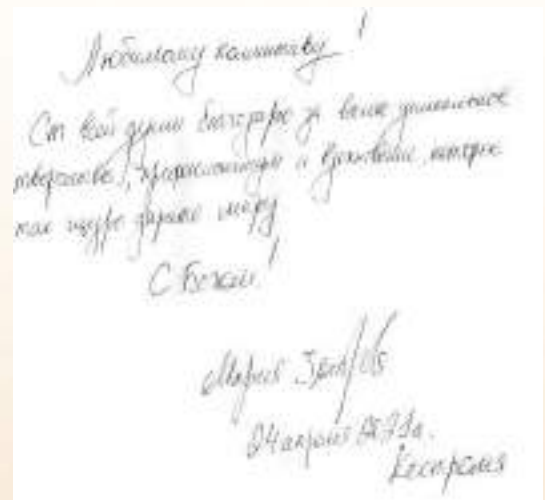 Любимому коллективу!
От всей души благодарю за ваше уникальное
творчество, профессионализм и вдохновение, которые
так щедро дарите миру
С Богом!
Мария
24 апреля
Кострома